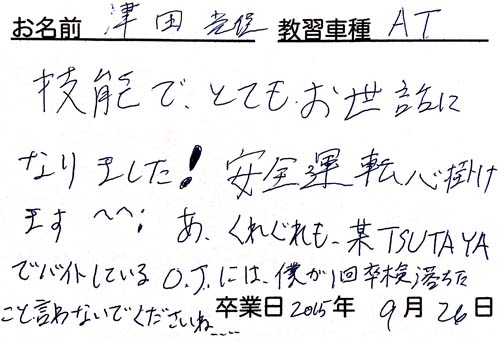 お名前 津田 教習車種 AT
技能で、とても、お世話に
なりました! 安全運転心掛け
ます ^^; あ、くれぐれも、某TSUTAYA
でバイトしているO.J.には、僕が1回卒検落ちた
こと言わないでくださいね....
卒業日 2015年 9月26日